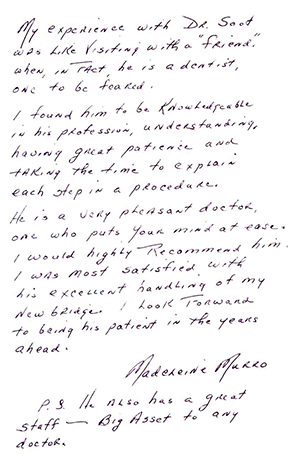 My experience with Dr. Soot
was like visiting with a "friend."
when, in fact, he is a dentist,
one to be feared.
I found him to be knowledgeable
in his profession, understanding,
having great patience and
taking the time to explain
each step in a procedure.
He is a very pleasant doctor,
one who puts your mind at ease.
I would highly recommend him.
I was most satisfied with
his excellent handling of my
new bridge. I look forward
to being his patient in the years
ahead.
Madeleine Murro
P.S. He also has a great
staff — Big Asset to any
doctor.